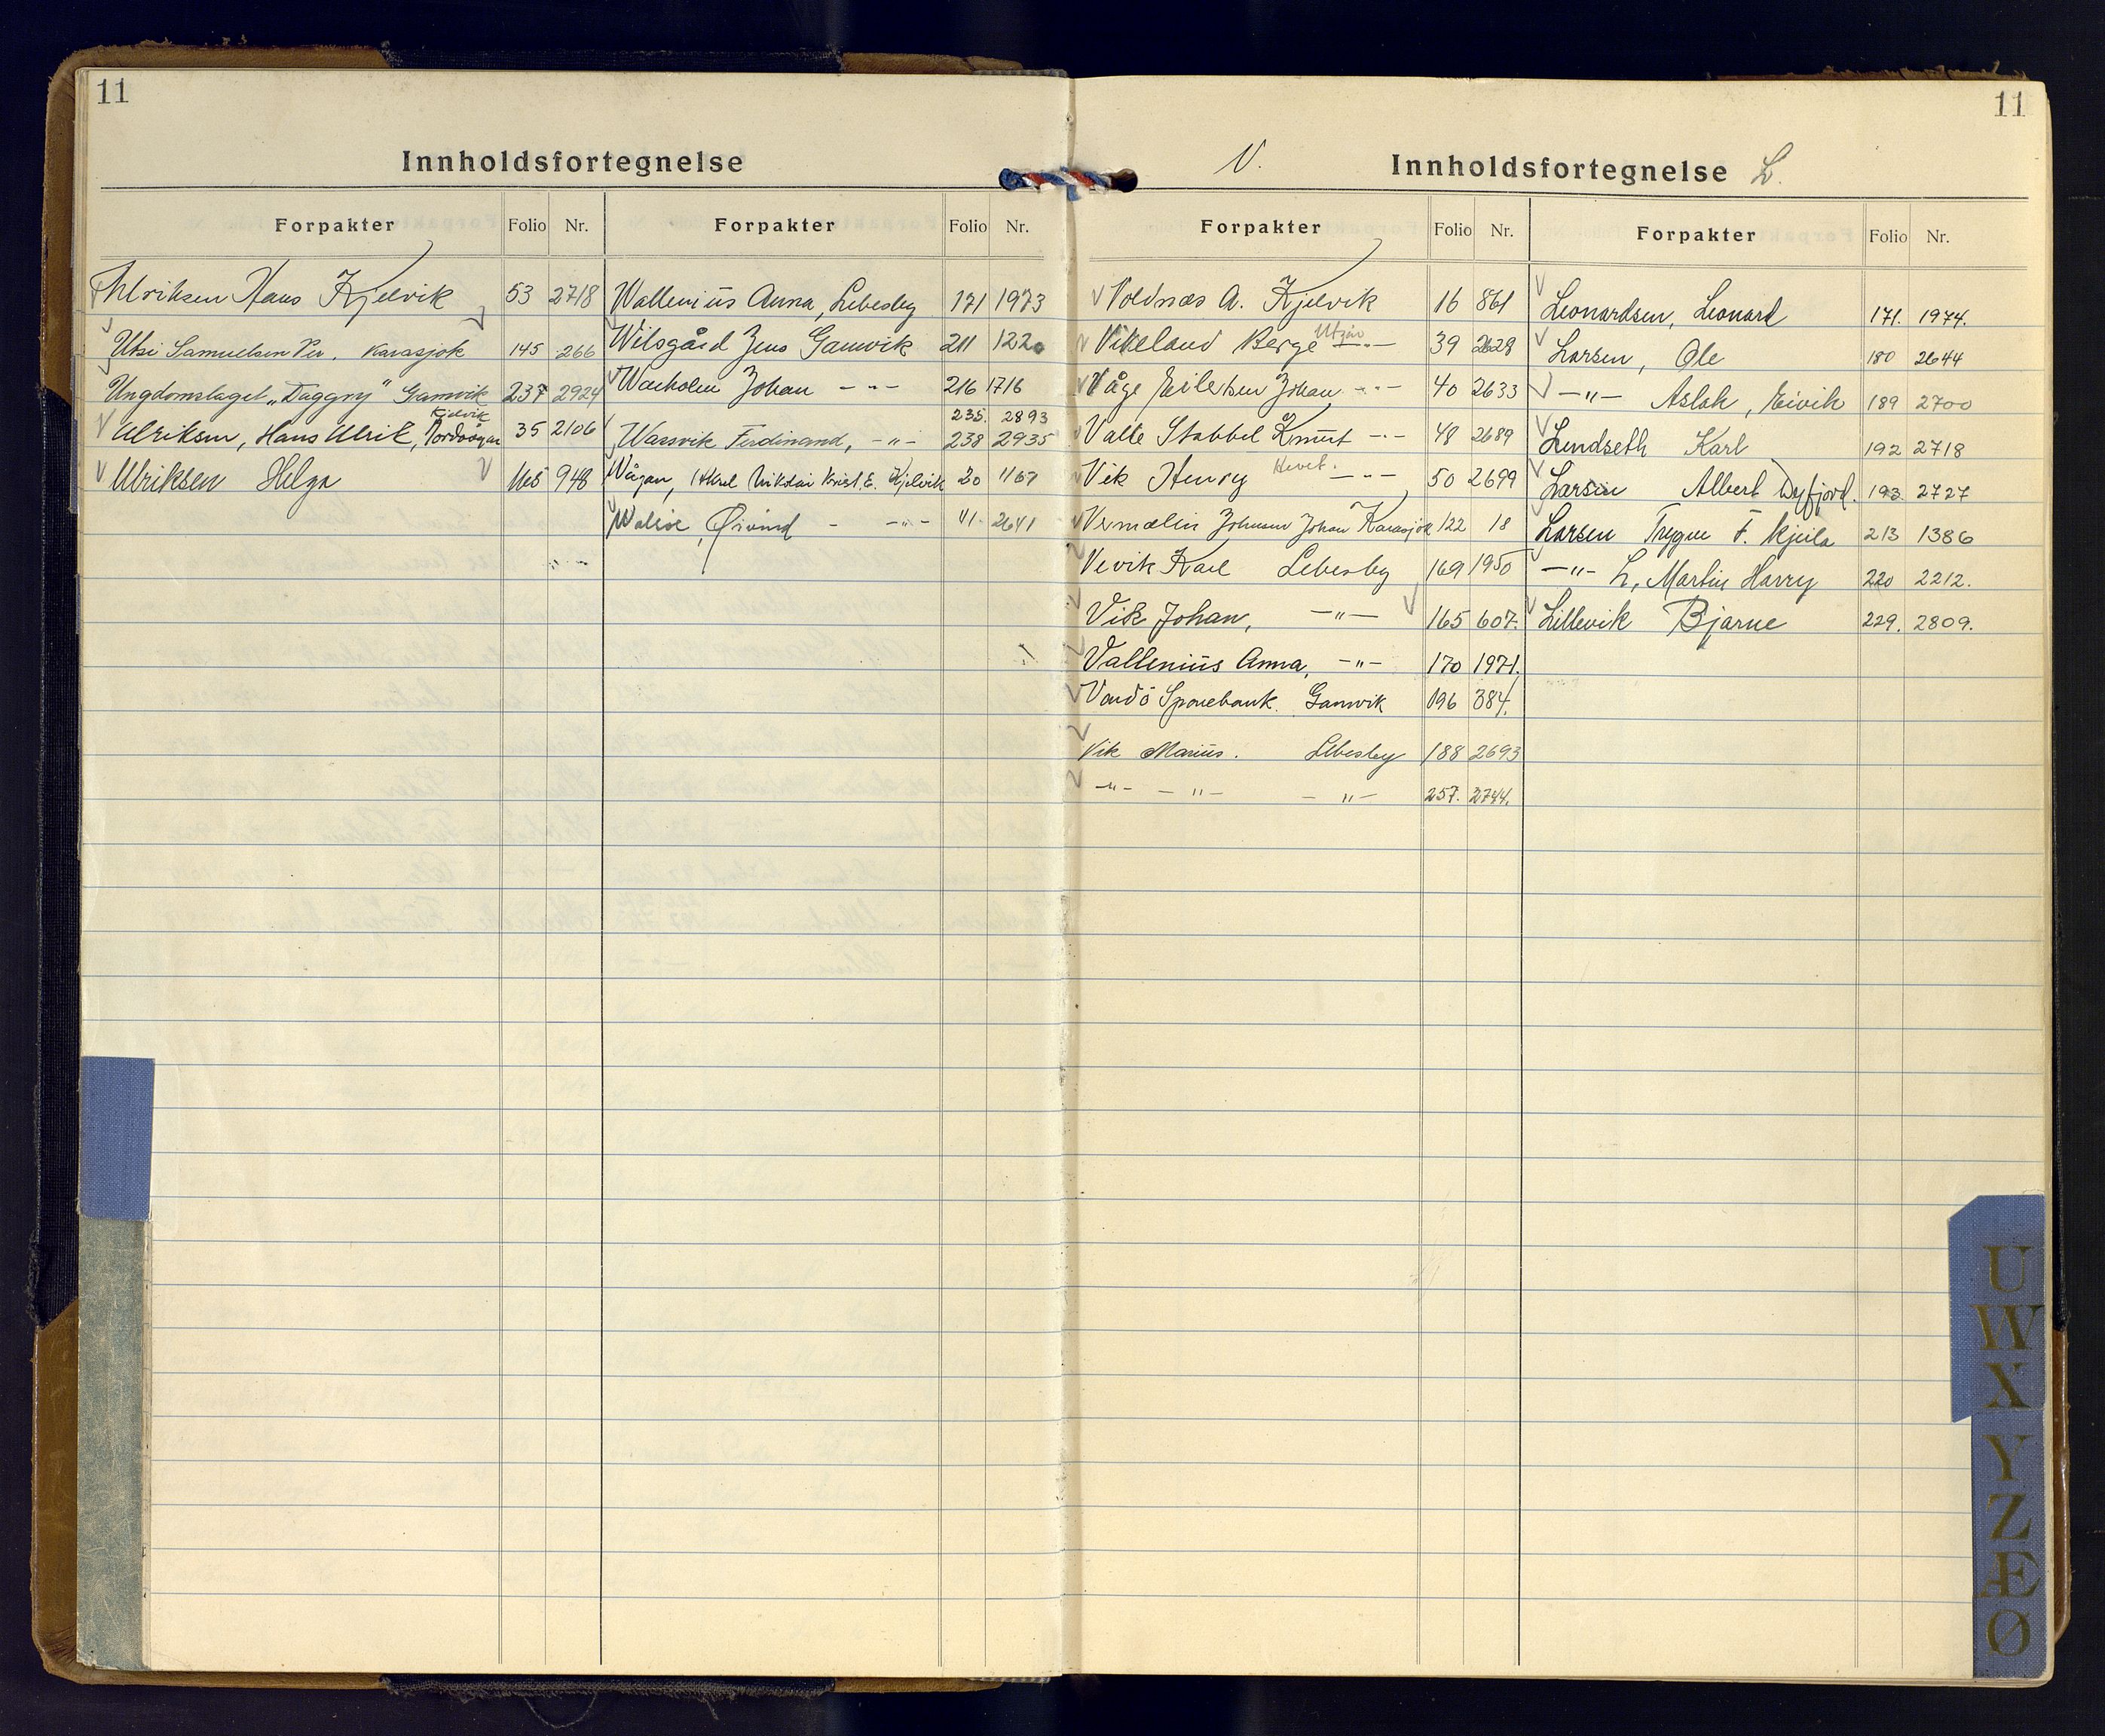 11
Innholdsfortegnelse
Forpakter Folio Nr.
Ulriksen Hans Kjelvik 53 2718
Utsi Samuelsen Per. Karasjok 145 266
Ungdomslaget "Daggry" Gamvik 237 2924
Kjelvik
Ulriksen, Hans Ulrik, Nordvågen 35 2106
Ulriksen Helga 165 948
Forpakter Folio Nr.
Wallenius Anna, Lebesby 171 1973
Wilsgård Jens Gamvik 211 1220
Warholm Johan -"- 216 1716
235. 2893
Warsvik Ferdinand, -"- 238 2935
Wågan, Nikolai Krist. E. Kjelvik 20 1167
Øivind - -"- 41. 2641
11
V. Innholdsfortegnelse L.
Forpakter Folio Nr.
Voldnæs A. Kjelvik 16 861
Vikeland Berge Utgår -"- 39 2628
Våge Eilertsen Johan -"- 40 2633
Valle Stabbel Knut -"- 48 2689
Vik Henry -"- 50 2699
Johnsen Johan Karasjok 122 18
Vevik Karl Lebesby 169 1950
Vik Johan, -"- 165 607.
Vallenius Anna, -"- 170 1971.
Vardö Sparebank. Gamvik 196 384.
Vik Marius. Lebesby 188 2693
-"- -"- -"- 257. 2744.
Forpakter Folio Nr.
Leonardsen, Leonard 171. 1974.
Larsen, Ole 180 2644
-"- Aslak, Eivik 189 2700
Lindseth Karl 192 2718
Larsen Albert Dyfjord. 193 2727
Larsen Trygve F. Kjeila 213 1386
-"- L, Martin Harry 220 2212.
Lillevik Bjarne 229. 2809.
U
W
X
Y
Z
Æ
Ø